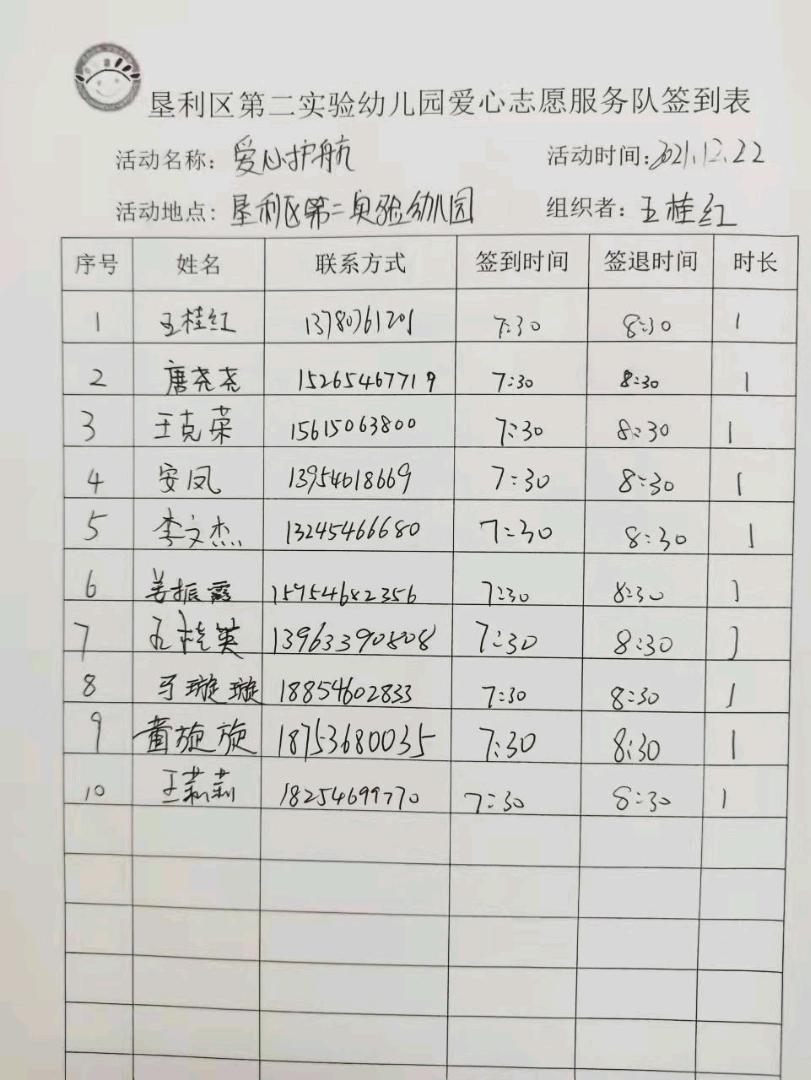 垦利区第二实验幼儿园爱心志愿服务队签到表
活动名称：爱心护航 活动时间：2021.12.22
活动地点：垦利区第二实验幼儿园 组织者：王桂红
序号 姓名 联系方式 签到时间 签退时间 时长
1 王桂红 13780761201 7:30 8:30 1
2 唐尧尧 15265467719 7:30 8:30 1
3 王克荣 15615063800 7:30 8:30 1
4 安凤 13954618669 7:30 8:30 1
5 李文杰 13245466680 7:30 8:30 1
6 姜振霞 7:30 8:30 1
7 王桂英 13963390808 7:30 8:30 1
8 璇璇 18854602833 7:30 8:30 1
9 黄旋旋 18753680035 7:30 8:30 1
10 王莉莉 18254699770 7:30 8:30 1